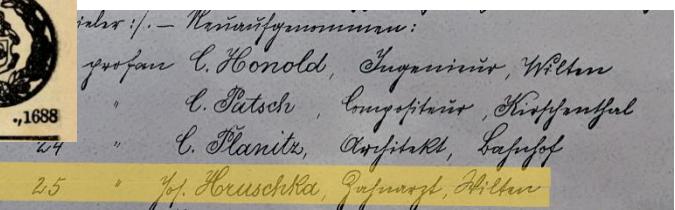 ieler :/. — Neuaufgenommen:
profan C. Honold, Ingenieur, Wilten
" C. Patsch, Compositeur, Kirschenthal
24 " C. Planitz, Architekt, Bahnhof
25 " Joh. Hruschka, Zahnarzt, Wilten
.,1688